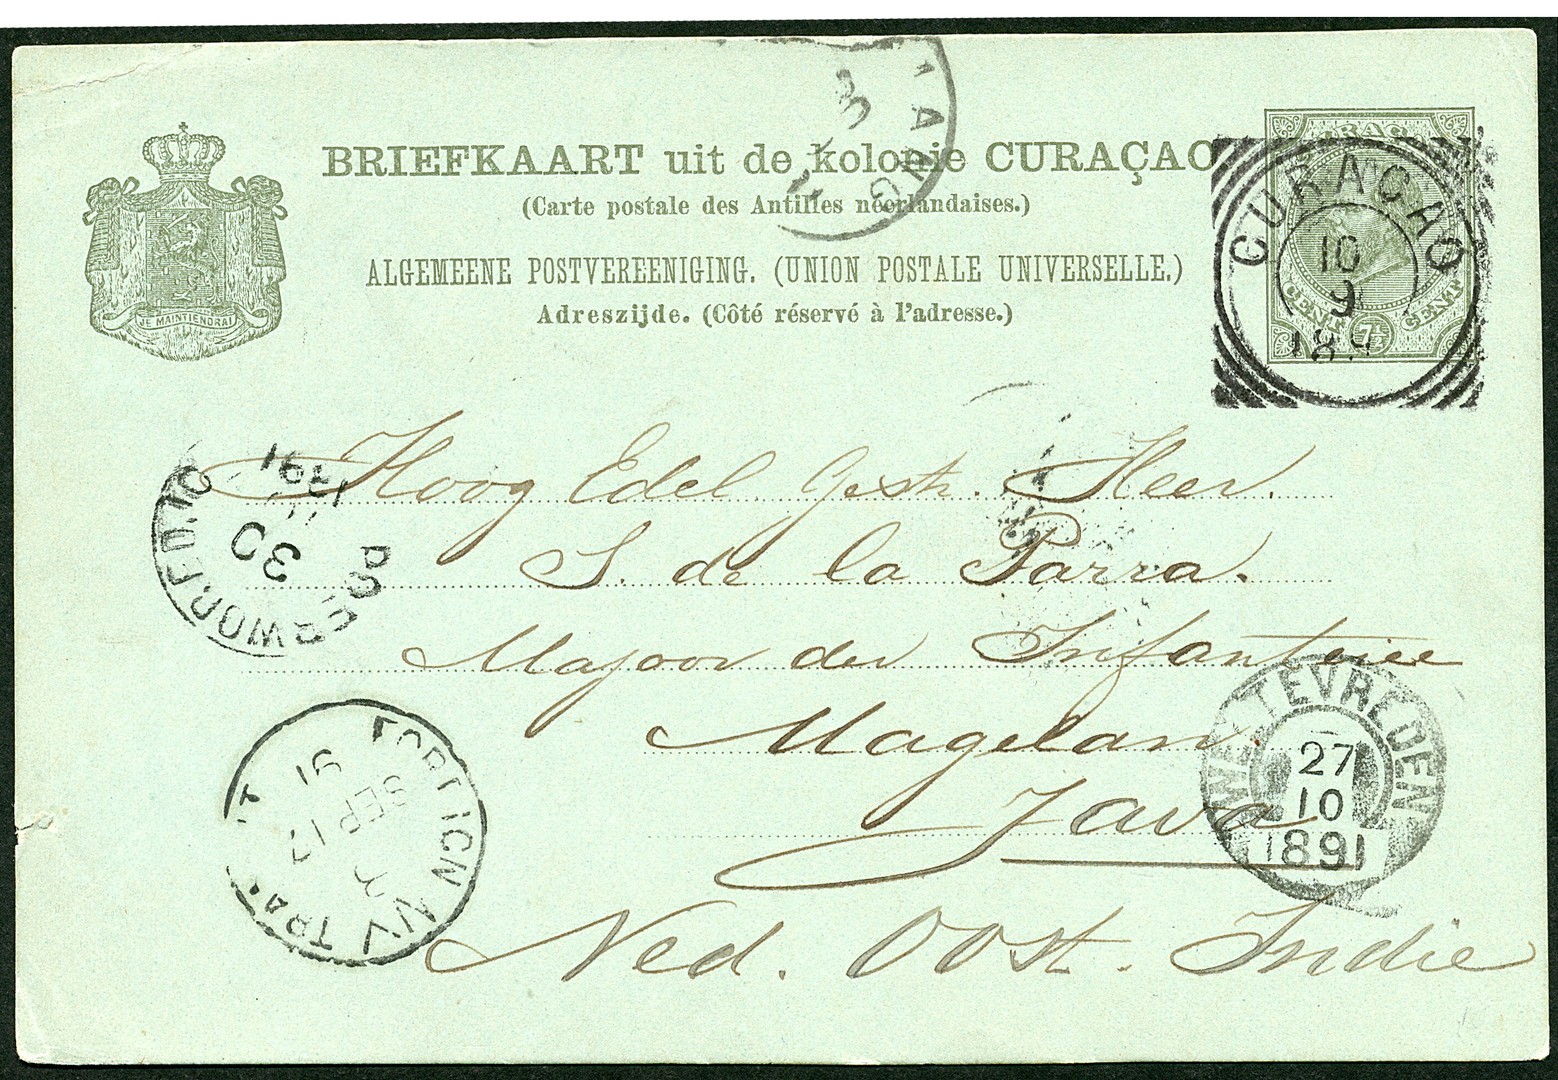 BRIEFKAART uit de kolonie CURAÇAO
(Carte postale des Antilles néerlandaises.)
ALGEMEENE POSTVEREENIGING. (UNION POSTALE UNIVERSELLE.)
Adreszijde. (Côté réservé à l'adresse.)
JE MAINTIENDRAI
CENT 7½ CENT
CURAÇAO
10
9
189
Hoog Edel Gestr. Heer.
S. de la Parra.
Majoor der Infanterie
Magelan.
Java
Ned. Oost. Indië
30
1891
WELTEVREDEN
27
10
1891
N.Y.
SEP 17
91